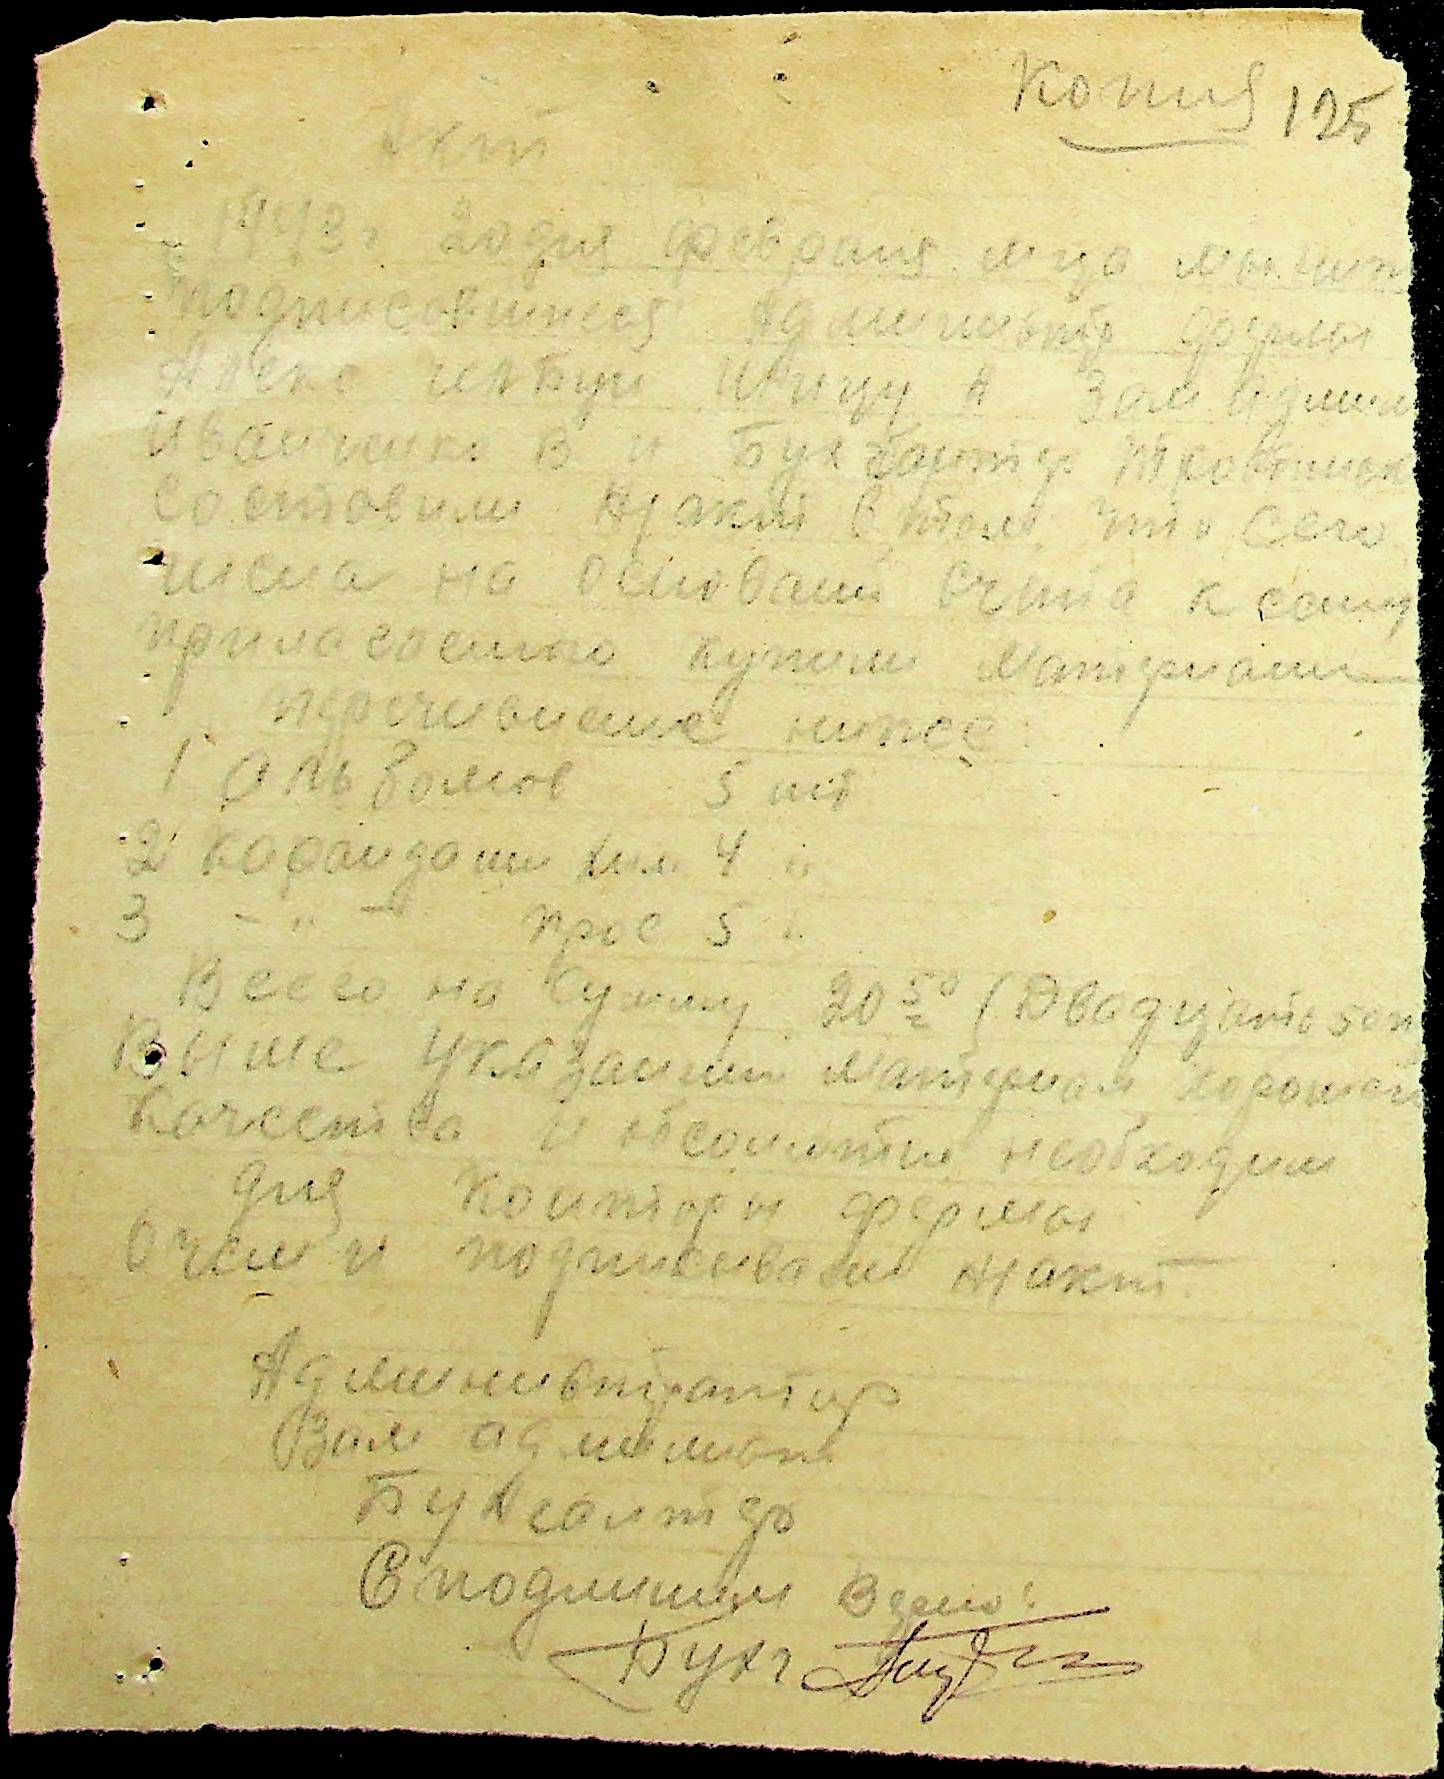 Копия 125
Акт
1943г 20 дня февраля м-ца мы ниж
подписавшиеся Админстр фермы
Алекс И А Зам Админ
Иванченко В и Бухгалтер
составили н/акт в том что сего
числа на основании счета к сему
купили материали
перечисление ниже:
1 Альбомов 5 шт
2 Карандаши хим 4 "
3 - " - прос 5 "
Всего на сумму 20 50 (Двадцать 50к
Выше указанный материал хорошего
качества и абсолютно необходим
для конторы фермы
О чем и подписываем н/акт.
Администратор
Зам админист
Бухгалтер
С подлинным верно:
Бухг